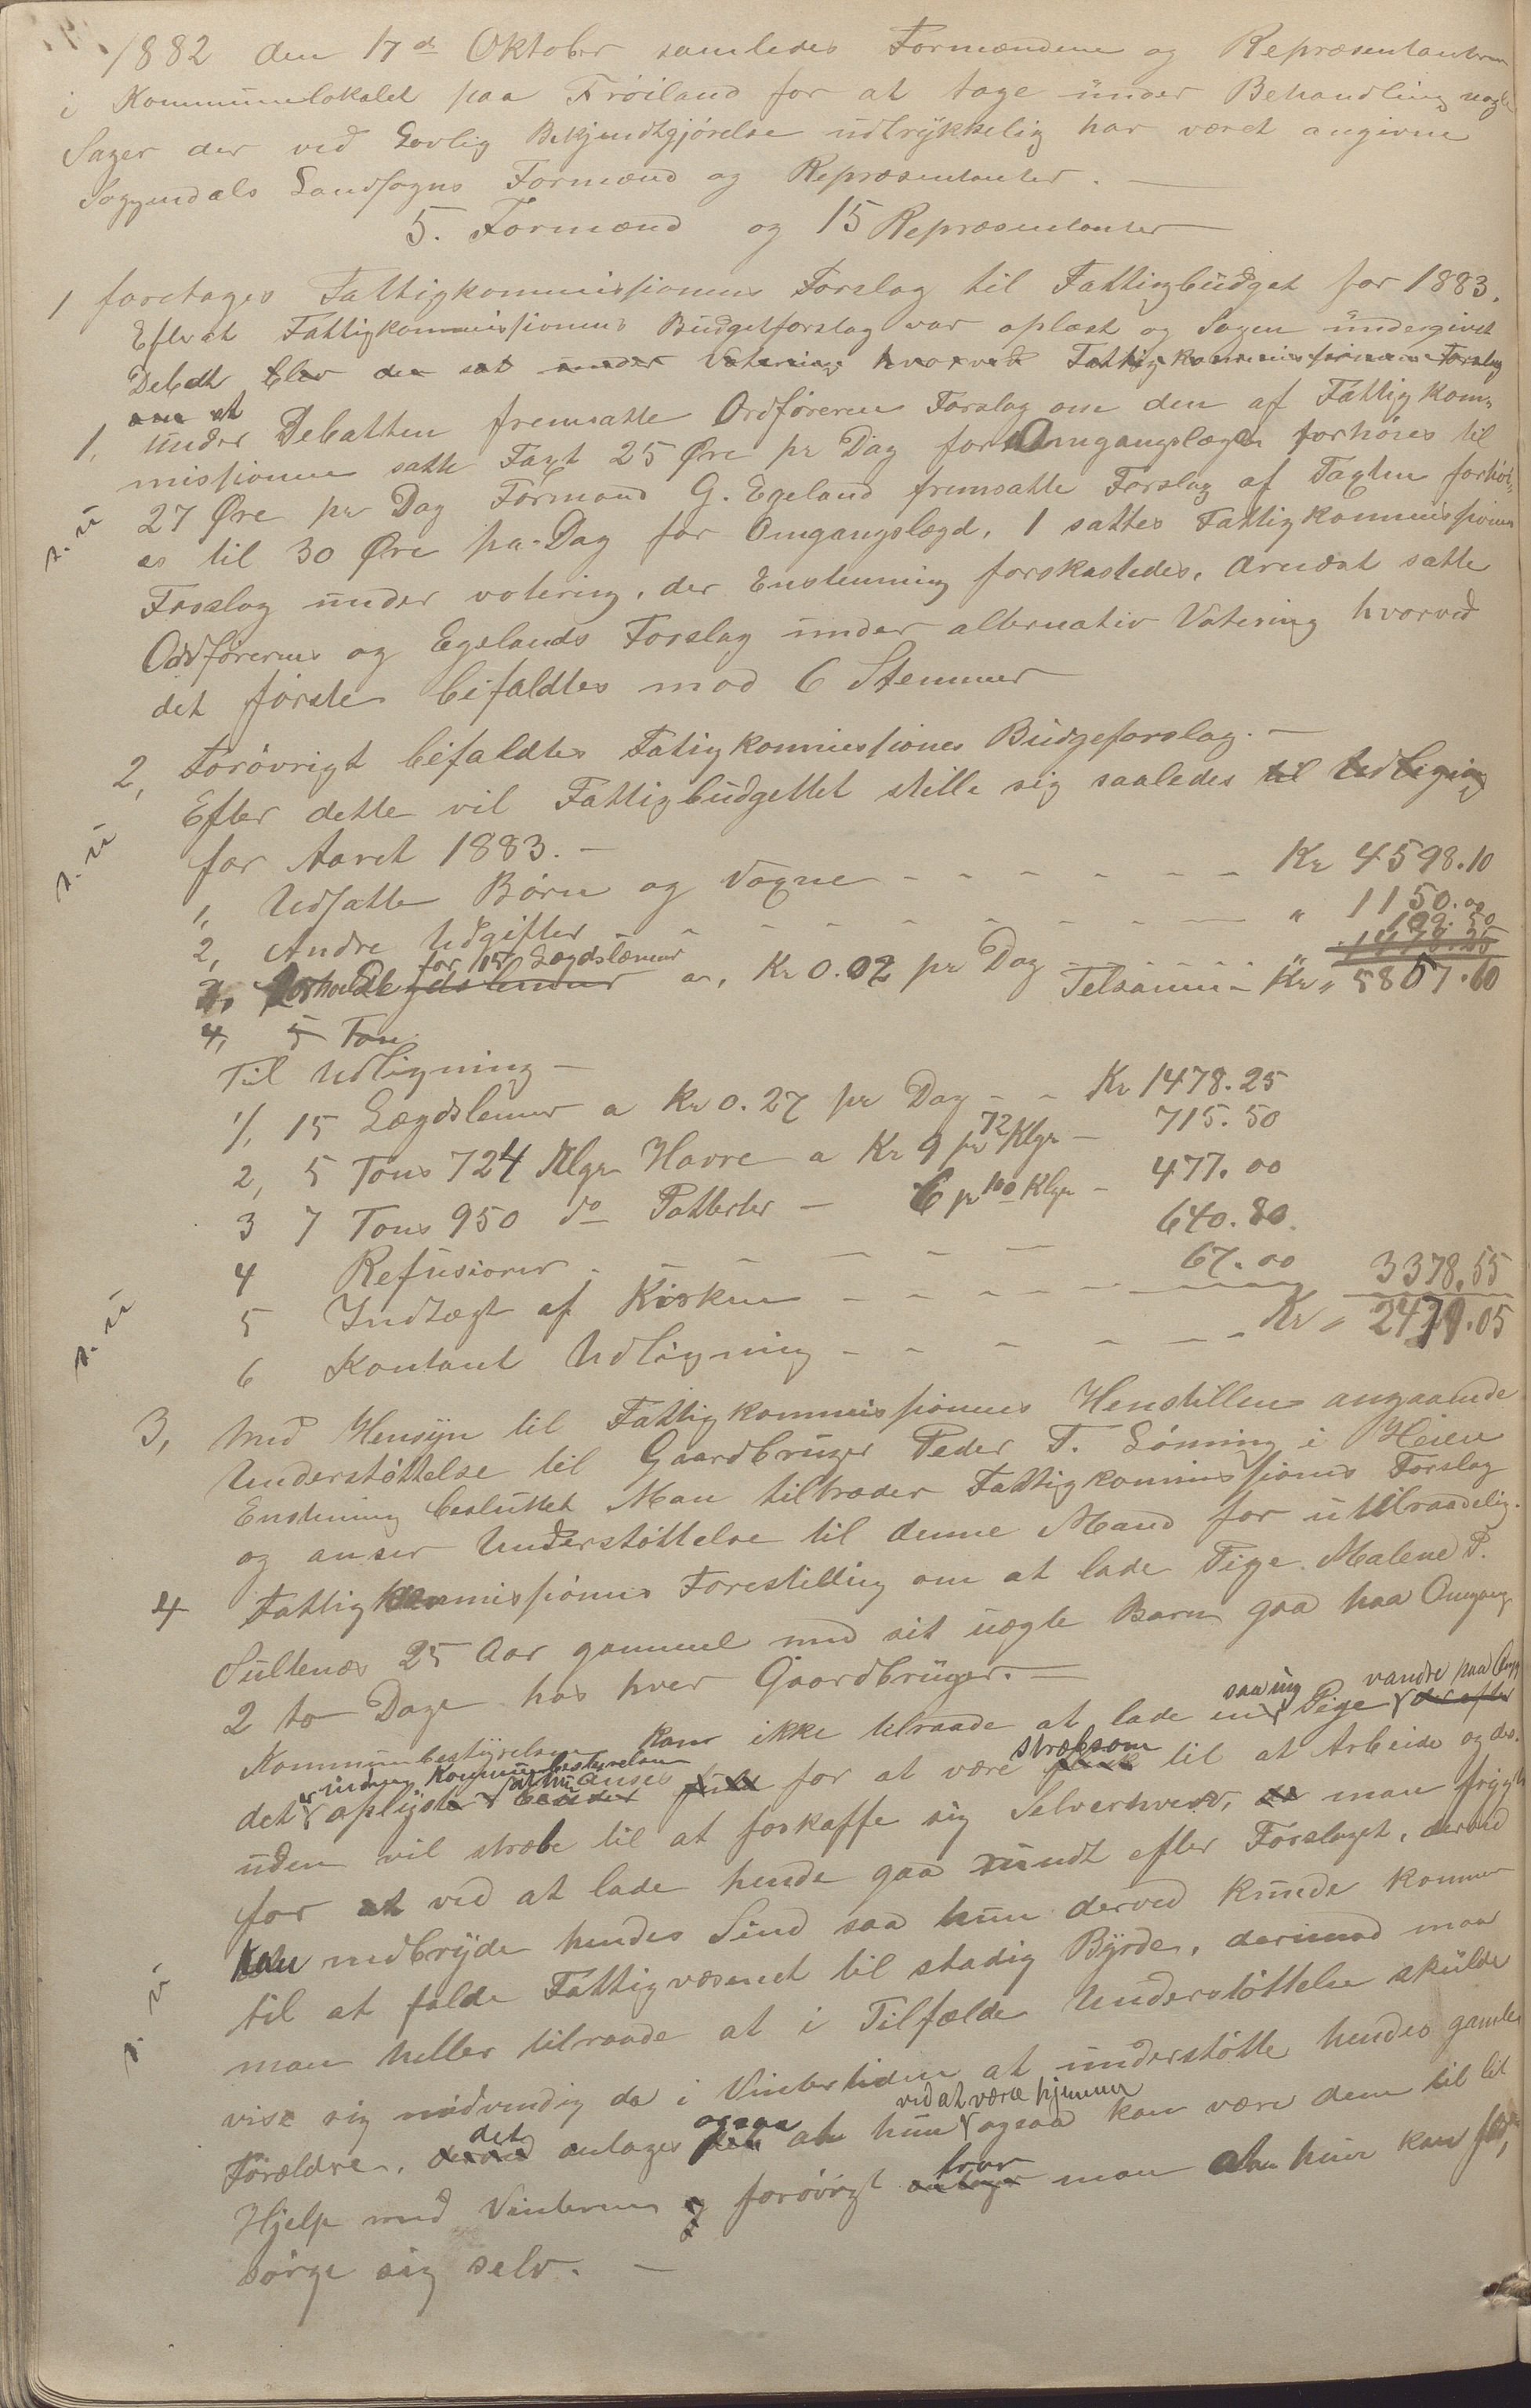 1882 den 17de Oktober samledes Formændene og Repræsentanterne
i Kommunelokalet paa Frøiland for at tage under Behandling nogle
Sager der ved Lovlig Bekjendtgjørelse udtrykkelig har været angivne
Soggendals Landsogns Formænd og Repræsentanter. —
5. Formænd og 15 Repræsentanter —
1 foretages Fattigkommissionens Forslag til Fattigbudget for 1883.
Efterat Fattigkommissionens Budgetforslag var oplæst og Sagen undergivet
Debatt blev den sat under Votering hvorved Fattigkommissionens Forslag
om at
1, under Debatten fremsatte Ordføreren Forslag om den af Fattigkom-
missionen satte Taxt 25 Øre pr Dag for Omgangslægd forhøies til
27 Øre pr Dag Formand G. Egeland fremsatte Forslag af Taxten forhøi-
es til 30 Øre pr. Dag for Omgangslægd. 1 sattes Fattigkommissionens
Forslag under votering, der Enstemmig forkastedes, dernæst satte
Ordførerens og Egelands Forslag under alternativ Votering hvorved
det første bifaldtes mod 6 Stemmer
2, Forøvrigt bifaldtes Fatigkommissiones Budgeforslag. —
Efter dette vil Fattigbudgettet stille sig saaledes til Udligning
for Aaret 1883. —
1, Udsatte Børn og Voxne - - - - - - Kr 4598.10
2, Andre Udgifter - - - - - - - - " 1150.00
109.50
3, for 15 Lægdslemmer a, Kr 0.02 pr Dag - - - - 1478.25
Telsammen Kr " 5857.60
4, 5 Ton
Til Udligning —
1/, 15 Lægdslemer a Kr 0.27 pr Dag - - Kr 1478.25
2, 5 Tons 724 Klgr Havre a Kr 9 pr 72 Klgr — 715.50
3 7 Tons 950 do Patteter — 6 pr 100 Klgr — 477.00
4 Refusioner - - - - - 640.80
5 Indtægt af Kirken - - - - - 67.00 3378.55
6 Kontant Udligning - - - - - Kr " 2479.05
3, Med Hensyn til Fattigkommissionens Henstillen angaaende
Understøttelse til Gaardbruger Peder T. Lønning i Heien
Enstemmig besluttet Man tiltræder Fattigkommissionens Forslag
og anser Understøttelse til denne Mand for utilraadelig.
4 Fattigkommissionens Forestilling om at lade Pige Malene P.
Sultenæs 25 Aar gammel med sit uægte Barn gaa paa Omgang
2 to Dage hos hver Gaardbruger. —
saa ung vandre paa
Kommunbestyrelsen kan ikke tilraade at lade en Pige der efter
inden Kommunbestyrelsen at hun stræbsom
det oplyst anses for at være til at Arbeide og des-
uden vil stræbe til at forskaffe sig Selverhverv, man frygter
for at ved at lade hende gaa rundt efter Forslaget, derved
kan nedbryde hendes Sind saa hun derved kunde komme
til at falde Fattigvæsenet til stadig Byrde, derimod maa
man heller tilraade at i Tilfælde Understøttelse skulde
vise sig nødvendig da i Vintertiden at understøtte hendes gamle
det ogsaa ved at være hjemme
Forældre, antages at hun ogsaa kan være dem til lit
tror
Hjelp med Vinteren og forøvrigt man at hun kan for-
sørge sig selv. —